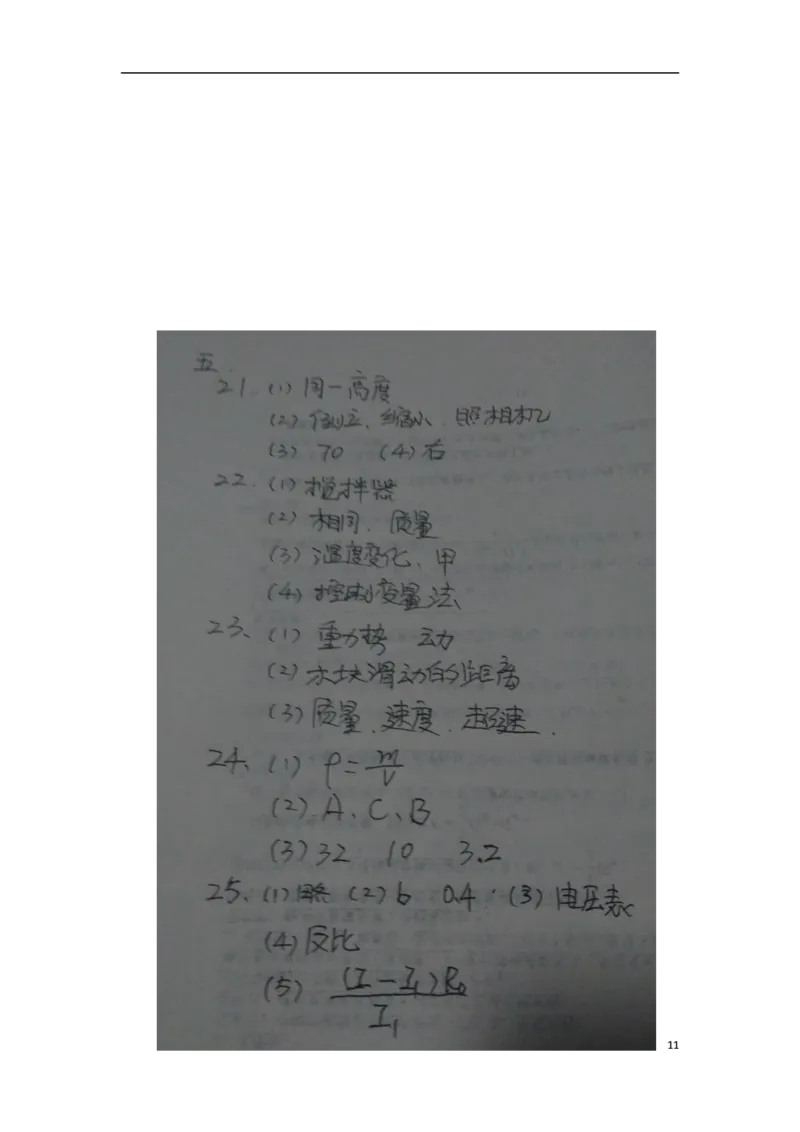 五
21. (1) 同一高度
(2) 倒立、缩小、照相机
(3) 70 (4) 右
22. (1) 搅拌器
(2) 相同、质量
(3) 温度变化、甲
(4) 控制变量法
23、(1) 重力势 动
(2) 木块滑动的距离
(3) 质量、速度、超速.
24、(1) ρ=m/V
(2) A、C、B
(3) 32 10 3.2
25、(1) 略 (2) b 0.4 (3) 电压表
(4) 反比
(5) (I-I₁)R₀/I₁
11